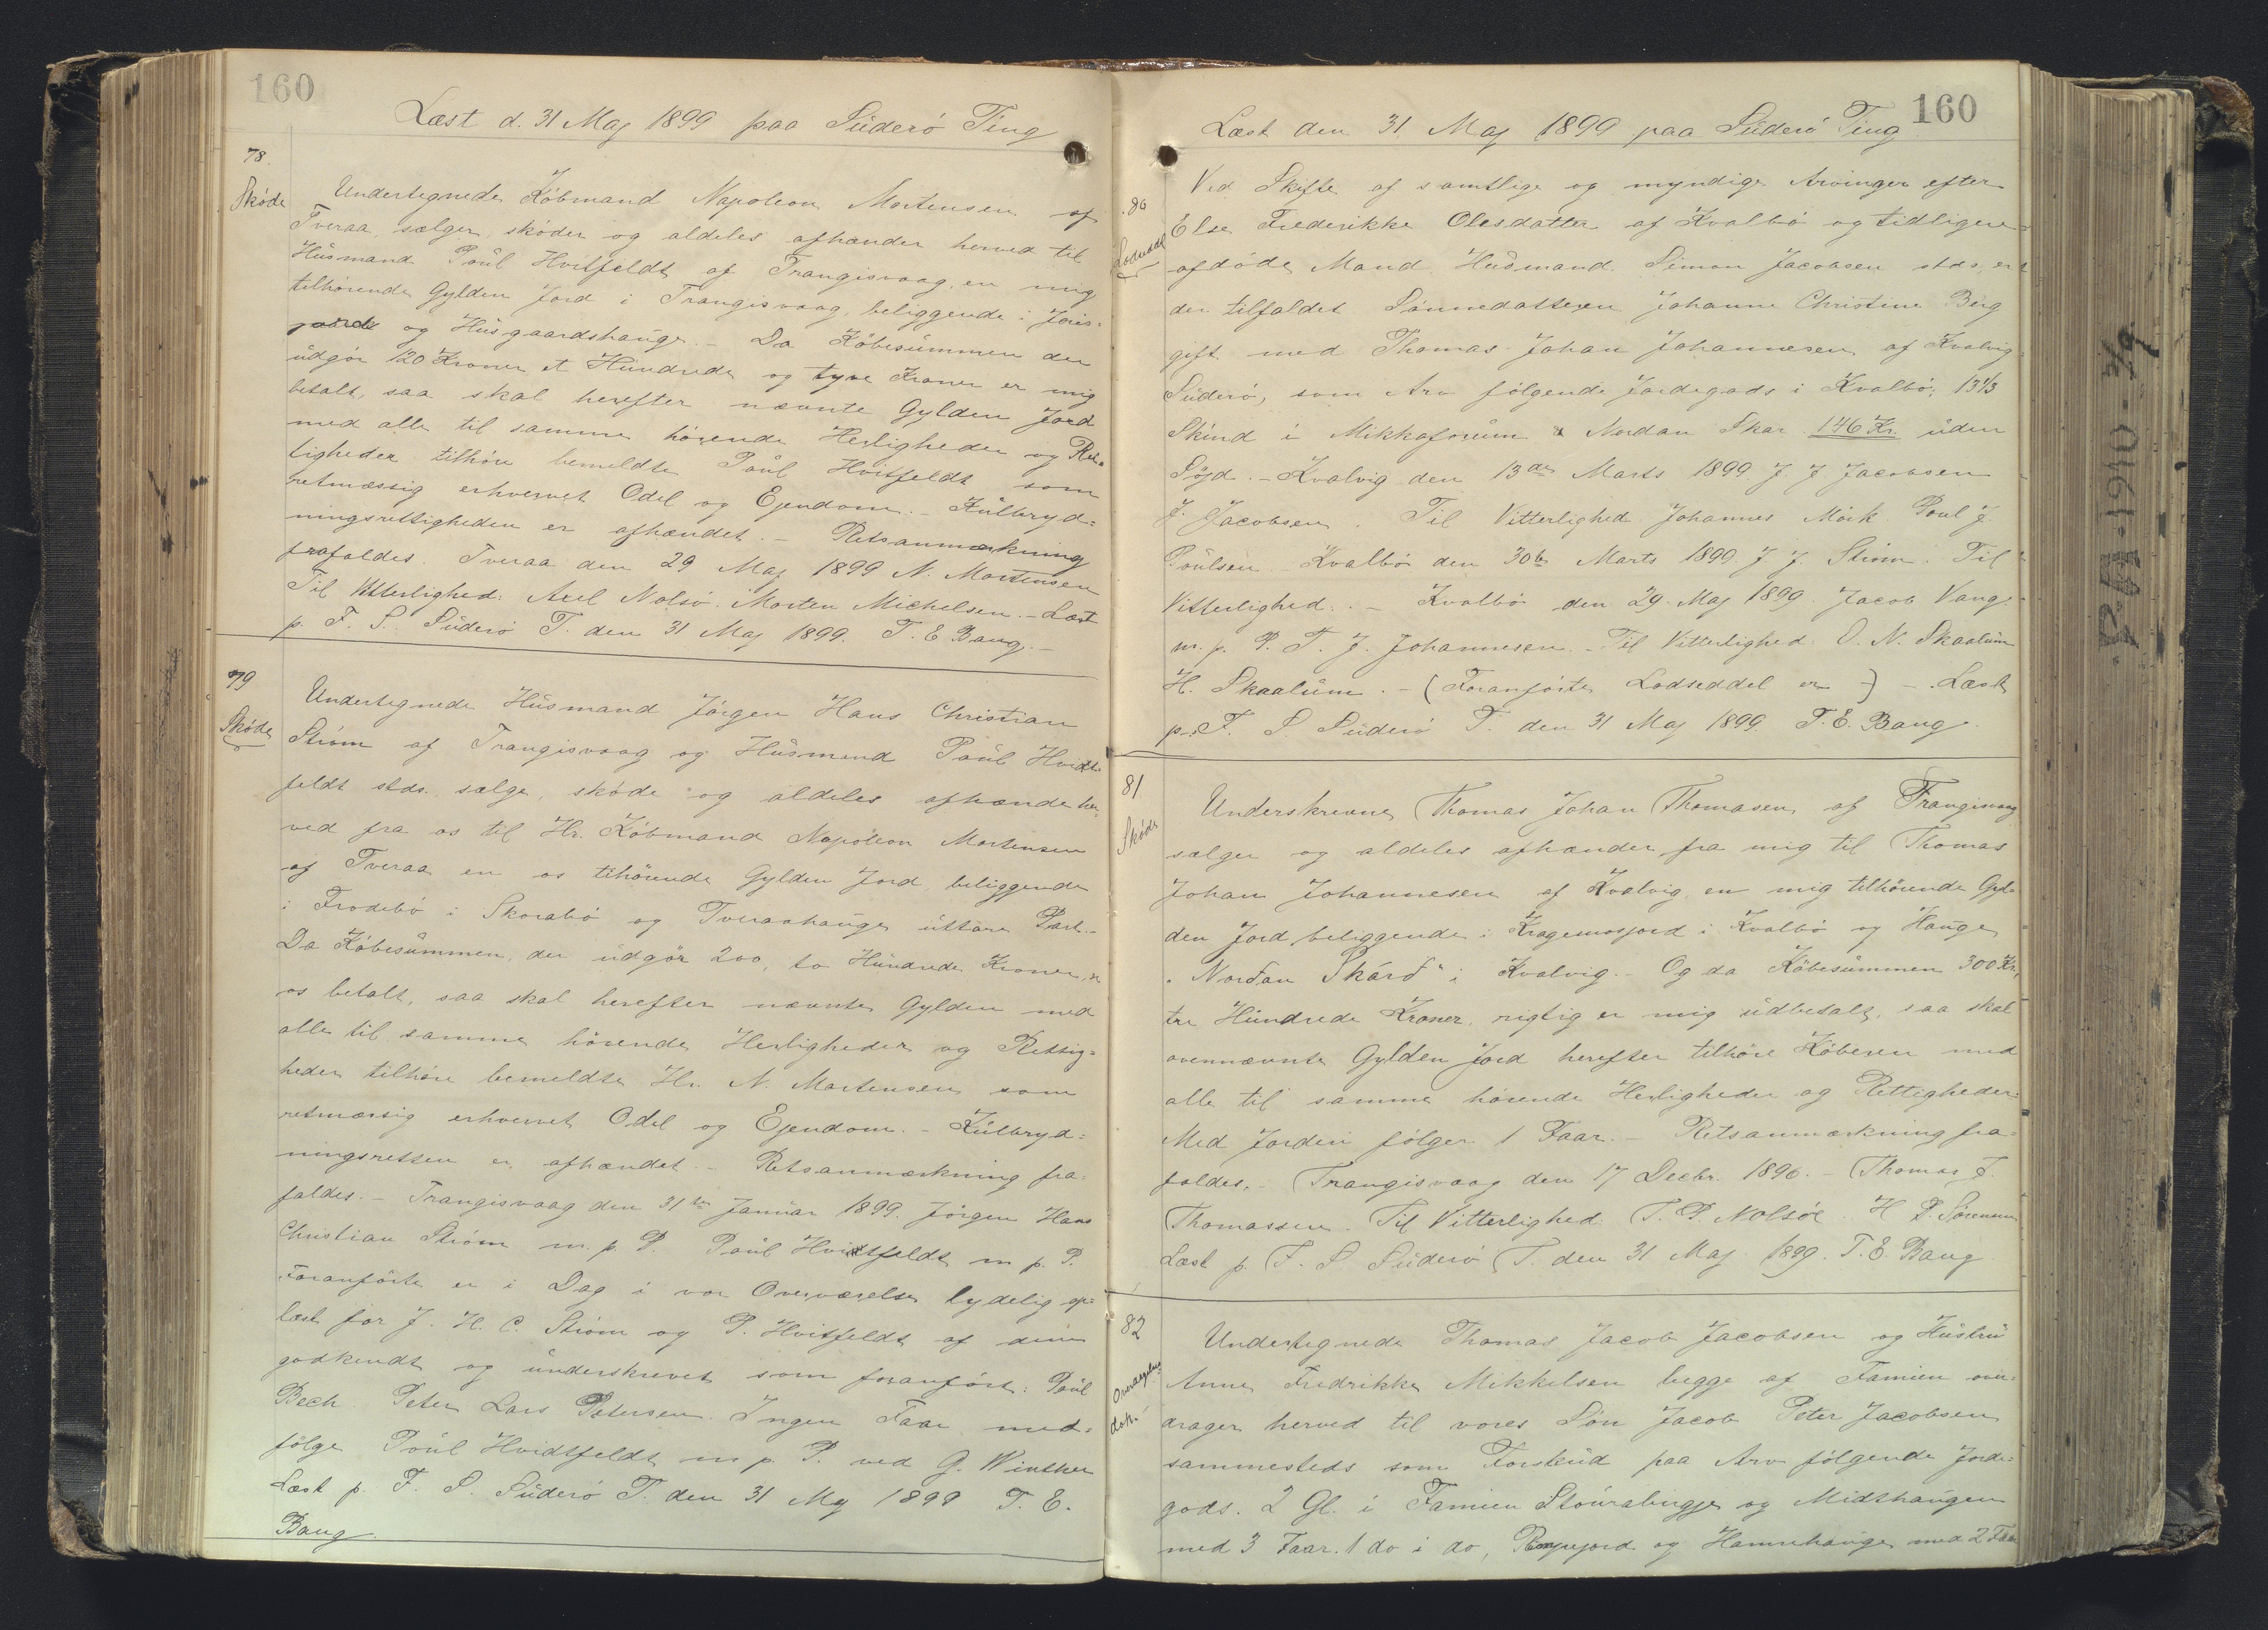 160
Læst d. 31 Maj 1899 paa Süderö Ting
78.
Skøde
Undertegnede Købmand Napoleon Mortensen af
Tveraa, sælger, skøder og aldeles afhænder herved til
Hüsmand Poül Hvitfeldt af Trangisvaag, en mig
tilhørende Gylden Jord i Trangisvaag, beliggende i
og Hüsgaardshaüge. – Da Købesümmen der
üdgør 120 Kroner et Hündrede og tyve Kroner er mig
betalt, saa skal herefter nævnte Gylden Jord
med alle til samme hørende Herligheder og Ret-
tigheder tilhøre bemeldte Poül Hvitfeldt som
retmæssig erhvervet Odel og Ejendom. – Külbryd=
ningsrettigheden er afhændet. – Retsanmærkning
frafaldes. Tveraa den 29 Maj 1899 N. Mortensen
Til Vitterlighed: Axel Nolsö. Morten Michelsen. – Læst
p. F. S. Süderö T. den 31 Maj 1899. T. E Bang. –
79
Skøde
Undertegnede Hüsmand Jörgen Hans Christian
Strøm af Trangisvaag og Hüsmand Poül Hvidt=
feldt stds. sælge, skøde og aldeles afhænde her=
ved fra os til Hr. Købmand Napoleon Mortensen
af Tveraa en os tihörende Gylden Jord, beliggende
i Frodebö i Skorabö og Tveraahaüge üttare Part. –
Da Købesümmen, der üdgør 200, to Hündrede Kroner, er
os betalt, saa skal herefter nævnte Gylden med
alle til samme hørende Herligheder og Rettig=
heder tilhøre bemeldte Hr. N. Mortensen som
retmæssig erhvervet Odel og Ejendom. – Külbryd=
ningsretten er afhændet. – Retsanmærkning fra=
faldes. – Trangisvaag den 31te Januar 1899. Jörgen Hans
Christian Strøm m. p. P. Poül Hvidtfeldt m p. P.
Foranførte er i Dag i vor Overværelse tydelig op=
læst for J. H. C. Strøm og P. Hvitfeldt af dem
godkendt og ünderskrevet som foranført: Poül
Bech. Peter Lars Petersen. Ingen Faar med=
følge Poül Hvidtfeldt m p. P. ved G. Winther
Læst p. F. S. Süderö T. den 31 Maj 1899 T. E.
Bang.
160
Læst den 31. Maj 1899 paa Süderö Ting
80
Lodseddel
Ved Skifte af samtlige og myndige Arvinger efter
Else Frederikke Olesdatter af Kvalbö og tidligere
afdøde Mand, Hüsmand Simon Jacobsen stds, er
der tilfaldet Sønnedatteren Johanne Christine Berg
gift med Thomas Johan Johannesen af Kvalvig
Süderö, som Arv følgende Jordegods i Kvalbö; 13 1/3
Skind i Mikkaforüm & Nordan Skar 146 Kr. üden
Søjd. – Kvalvig den 13de Marts 1899 J. J. Jacobsen
J. Jacobsen Til Vitterlighed Johannes Mörk Poul J
Poülsen – Kvalbö den 30te Marts 1899 J. J. Strøm. Til
Vitterlighed: – Kvalbö den 29 Maj 1899 Jacob Vang
m. p. P. T. J. Johannesen. – Til Vitterlighed O. N. Skaalüm
H. Skaalüm. – (Foranførte Lodseddel er –) – Læst
p. F. S. Süderö T. den 31 Maj 1899. T. E. Bang.
81
Skøde
Underskrevne Thomas Johan Thomasen af Trangisvaag
sælger og aldeles afhænder fra mig til Thomas
Johan Johannesen af Kvalvig, en mig tilhørende Gyl=
den Jord beliggende i Kragemosjord i Kvalbö og Haüge
„Nordan Skárd“ i Kvalvig. – Og da Købesümmen 300 Kr,
tre Hündrede Kroner, rigtig er mig üdbetalt, saa skal
ovennævnte Gylden Jord herefter tilhøre Køberen med
alle til samme hørende Herligheder og Rettigheder.
Med Jorden følger 1 Faar. – Retsanmærkning fra=
faldes. – Trangisvaag den 17 Decbr. 1896. – Thomas J.
Thomassen. Til Vitterlighed: T. P. Nolsöe H P. Sörensen
Læst p. F. S Süderö T. den 31 Maj 1899. T. E. Bang
82
Undertegnede Thomas Jacob Jacobsen og Hüstrü
Anne Fredrikke Mikkelsen begge af Famien over=
drager herved til vores Søn Jacob Peter Jacobsen
sammesteds som Forsküd paa Arv følgende Jorde=
gods. 2 Gl. i Famien Stóürabingje og Midthaügen
med 3 Faar. 1 do i do, og Hamrehaüge med 2 Faar